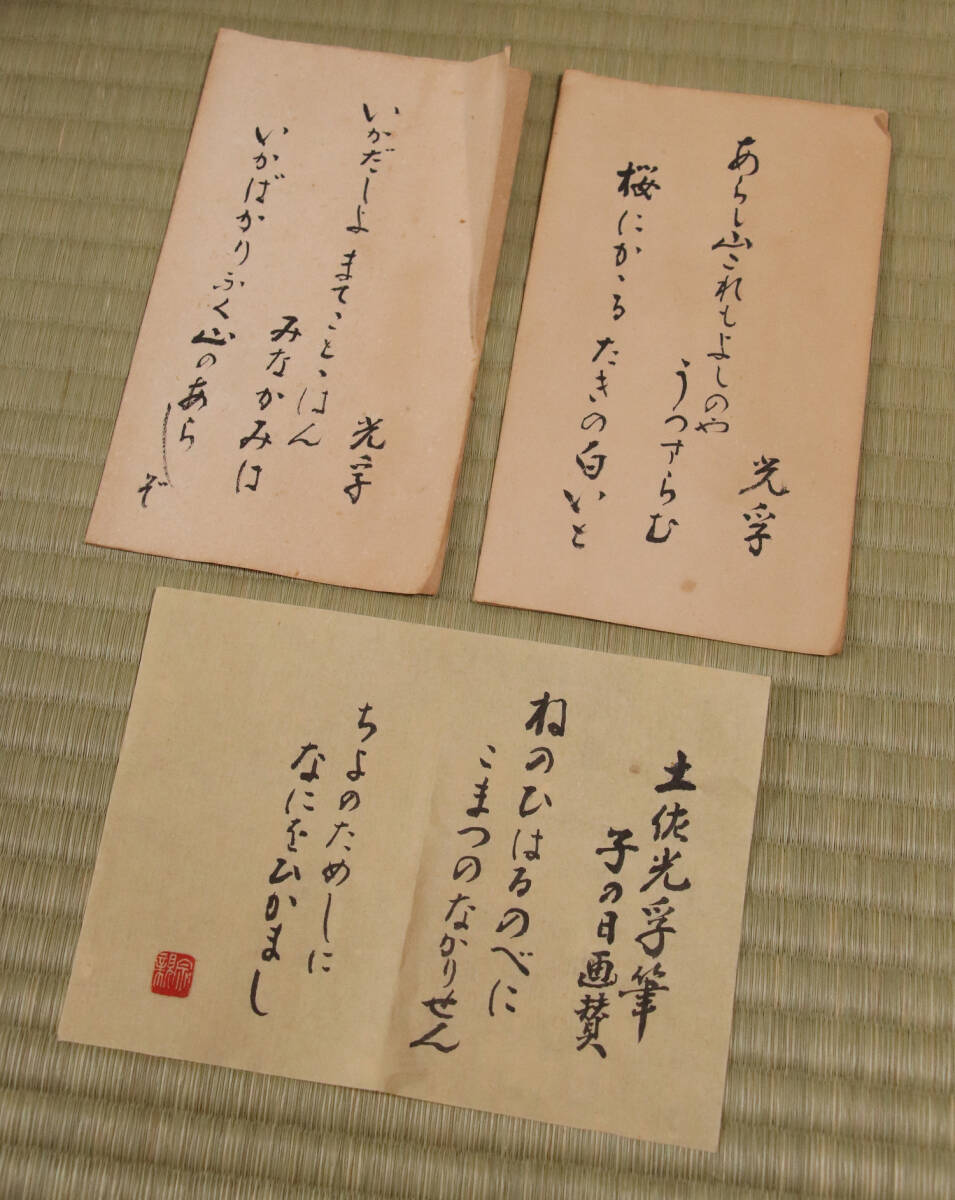 あらし山これもよしのや
うつすらむ
桜にかゝるたきの白いと
光孚
いかだしよまてことゝはん
みなかみは
いかばかりふく山のあらしぞ
光孚
土佐光孚筆
子の日画賛
ねのひはるのべに
こまつのなかりせん
ちよのためしに
なにをひかまし
宗親